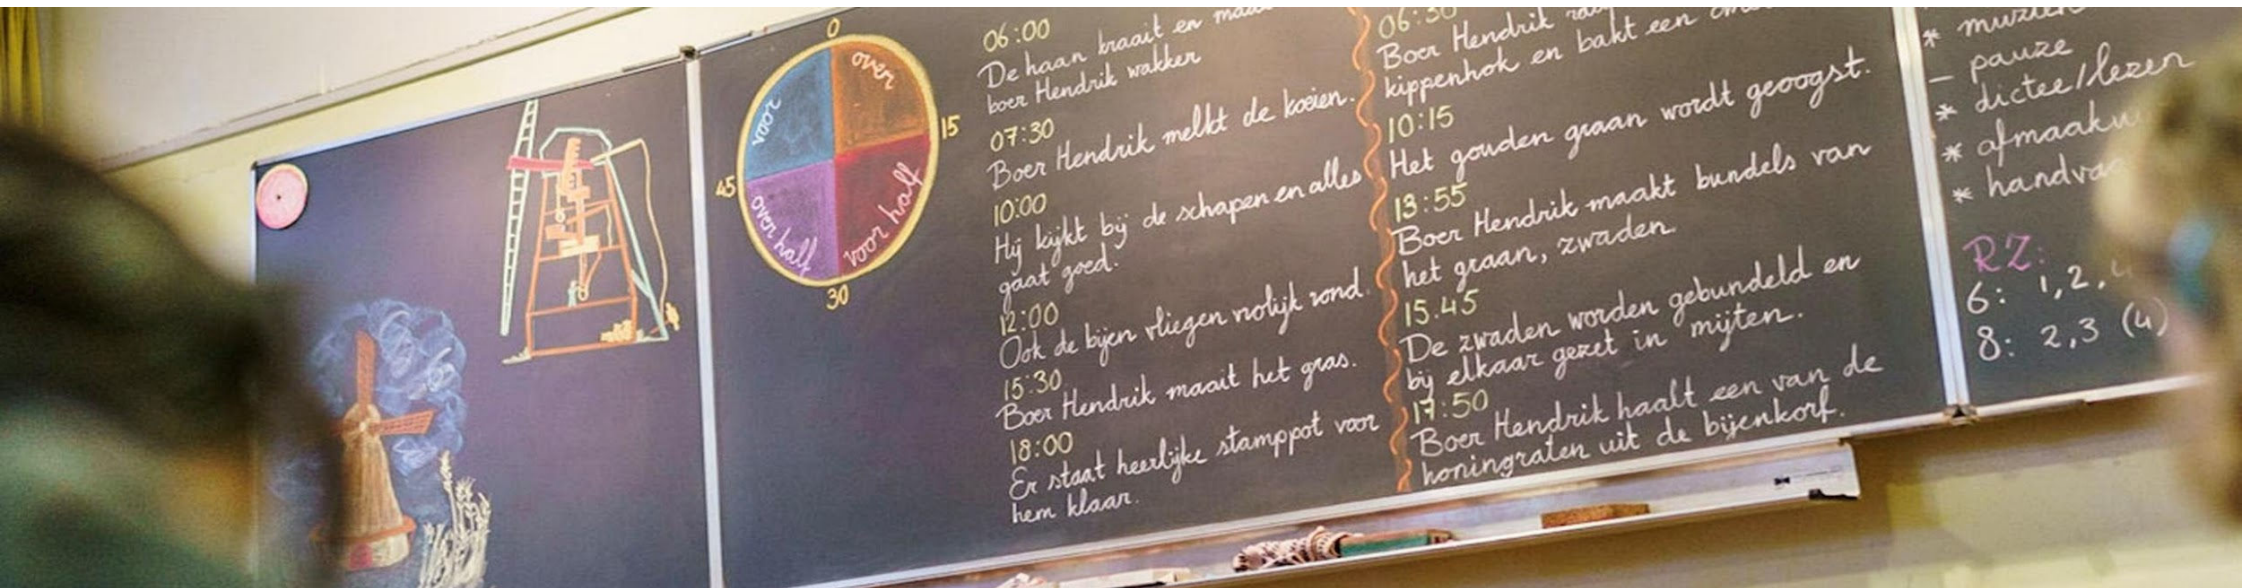 0
over
15
voor half
30
over half
45
voor
06:00
De haan kraait en
boer Hendrik wakker
07:30
Boer Hendrik melkt de koeien.
10:00
Hij kijkt bij de schapen en alles
gaat goed.
12:00
Ook de bijen vliegen vrolijk rond.
15:30
Boer Hendrik maait het gras.
18:00
Er staat heerlijke stamppot voor
hem klaar.
06:30
Boer Hendrik
kippenhok en bakt een
10:15
Het gouden graan wordt geoogst.
13:55
Boer Hendrik maakt bundels van
het graan, zwaden.
15.45
De zwaden worden gebundeld en
bij elkaar gezet in mijten.
17:50
Boer Hendrik haalt een van de
honingraten uit de bijenkorf.
*
– pauze
* dictee/lezen
*
*
RZ:
6: 1,2,
8: 2,3 (4)